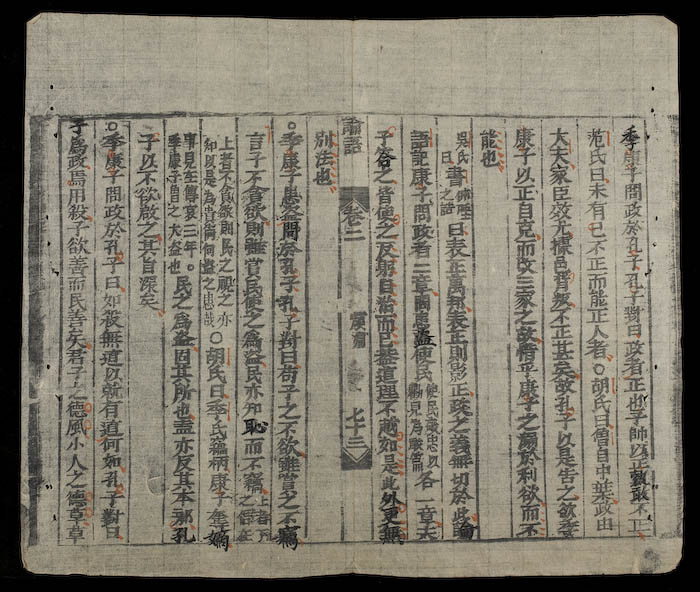 季康子問政於孔子孔子對曰政者正也子帥以正孰敢不正
范氏曰未有己不正而能正人者○胡氏曰魯自中葉政由
大夫家臣效尤據邑背叛不正甚矣故孔子以是告之欲季
康子以正自克而改三家之故惜乎康子之溺於利欲而不
能也
吳氏曰書仲虺之誥曰表正萬邦表正則影正政之義無切於此論
語記康子問政者三章患盜使民使民敬忠以各一章夫
子答之皆使之反躬自治而已蓋道理不越如是此外更無
別法也
論語 卷二 顏淵 七十三
○季康子患盜問於孔子孔子對曰苟子之不欲雖賞之不竊
言子不貪欲則雖賞民使之為盜民亦知恥而不竊上者民之儀表
上者不貪欲則民之視之亦知以是為貴尚何盜之患哉○胡氏曰季氏竊柄康子奪嫡
事見左傳哀三年。季康子魯之大盜也民之為盜固其所也盍亦反其本耶孔
子以不欲啟之其旨深矣
○季康子問政於孔子曰如殺無道以就有道何如孔子對曰
子為政焉用殺子欲善而民善矣君子之德風小人之德草草